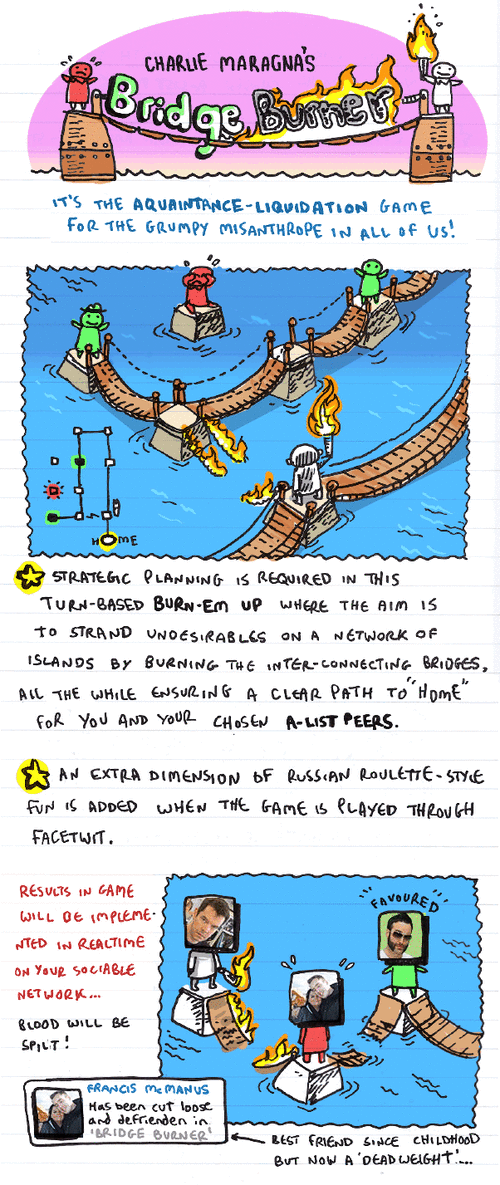 CHARLIE MARAGNA'S
Bridge Burner
IT'S THE AQUAINTANCE-LIQUIDATION GAME
FOR THE GRUMPY MISANTHROPE IN ALL OF US!
HOME
STRATEGIC PLANNING IS REQUIRED IN THIS
TURN-BASED BURN-EM UP WHERE THE AIM IS
TO STRAND UNDESIRABLES ON A NETWORK OF
ISLANDS BY BURNING THE INTER-CONNECTING BRIDGES,
ALL THE WHILE ENSURING A CLEAR PATH TO "HOME"
FOR YOU AND YOUR CHOSEN A-LIST PEERS.
AN EXTRA DIMENSION OF RUSSIAN ROULETTE-STYLE
FUN IS ADDED WHEN THE GAME IS PLAYED THROUGH
FACETWIT.
RESULTS IN GAME
WILL BE IMPLEME-
NTED IN REALTIME
ON YOUR SOCIABLE
NETWORK...
BLOOD WILL BE
SPILT!
FAVOURED
FRANCIS McMANUS
Has been cut loose
and defrienden in
'BRIDGE BURNER'
BEST FRIEND SINCE CHILDHOOD
BUT NOW A 'DEADWEIGHT'....